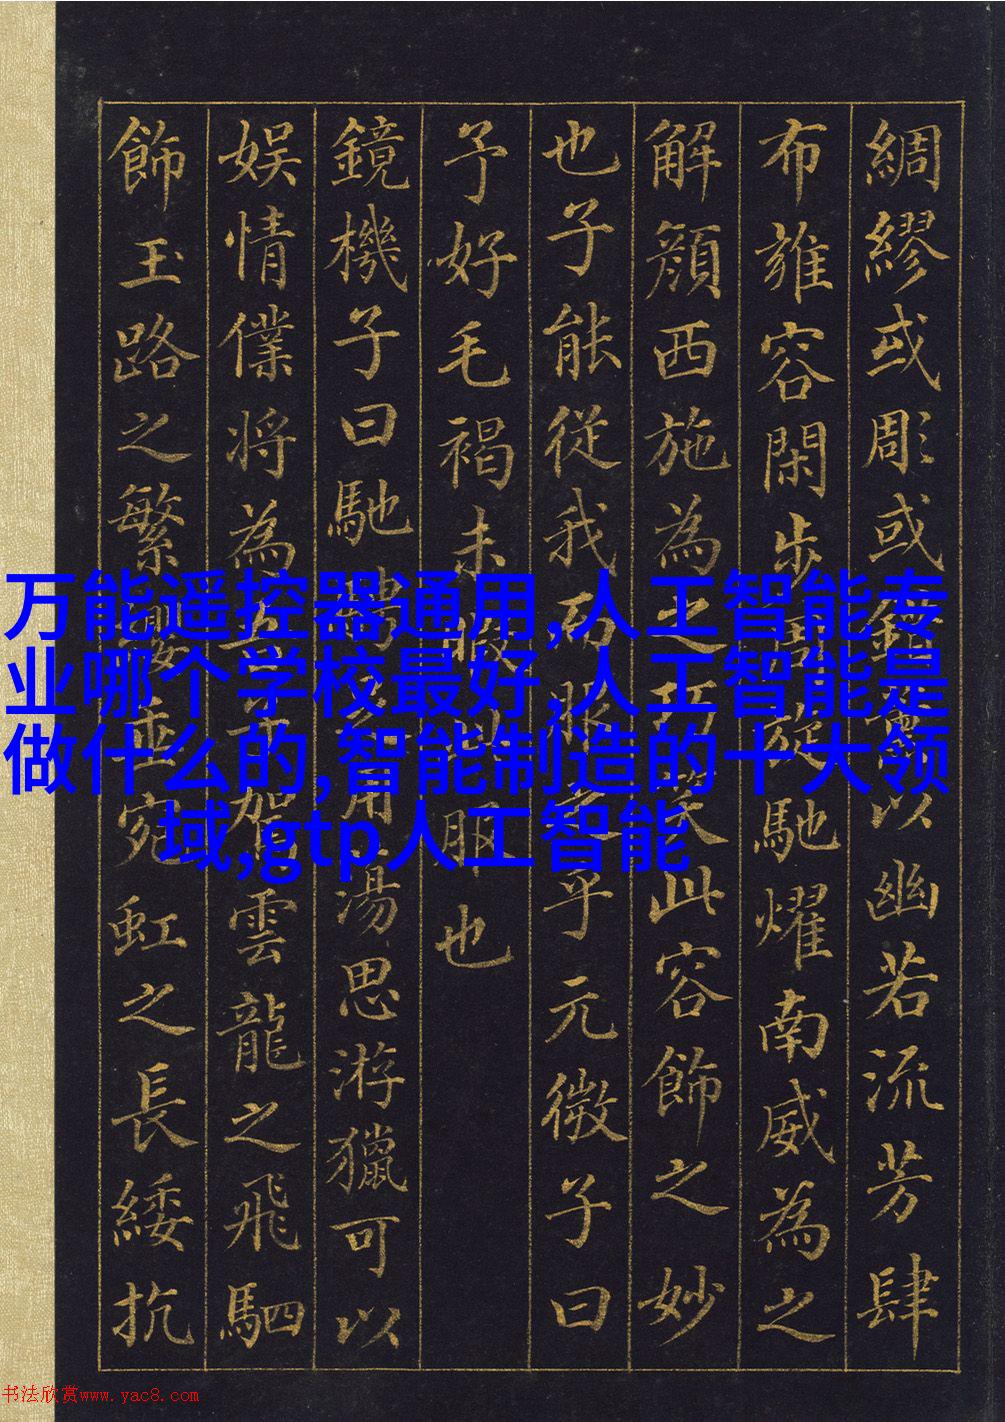 綢繆或彫或錯薰以幽若流芳肆
布雍容閑步周旋馳燿南威為之
解顏西施為之巧笑此容飾之妙
也子能從我而服之乎元微子曰
予好毛褐未暇此服也
鏡機子曰馳騁足用蕩思游獵可以
娛情僕將為吾子駕雲龍之飛駟
飾玉路之繁纓垂宛虹之長綏抗
万能遥控器通用,人工智能专
业哪个学校最好,人工智能是
做什么的,智能制造的十大领
域,gtp人工智能
书法欣赏www.yac8.com